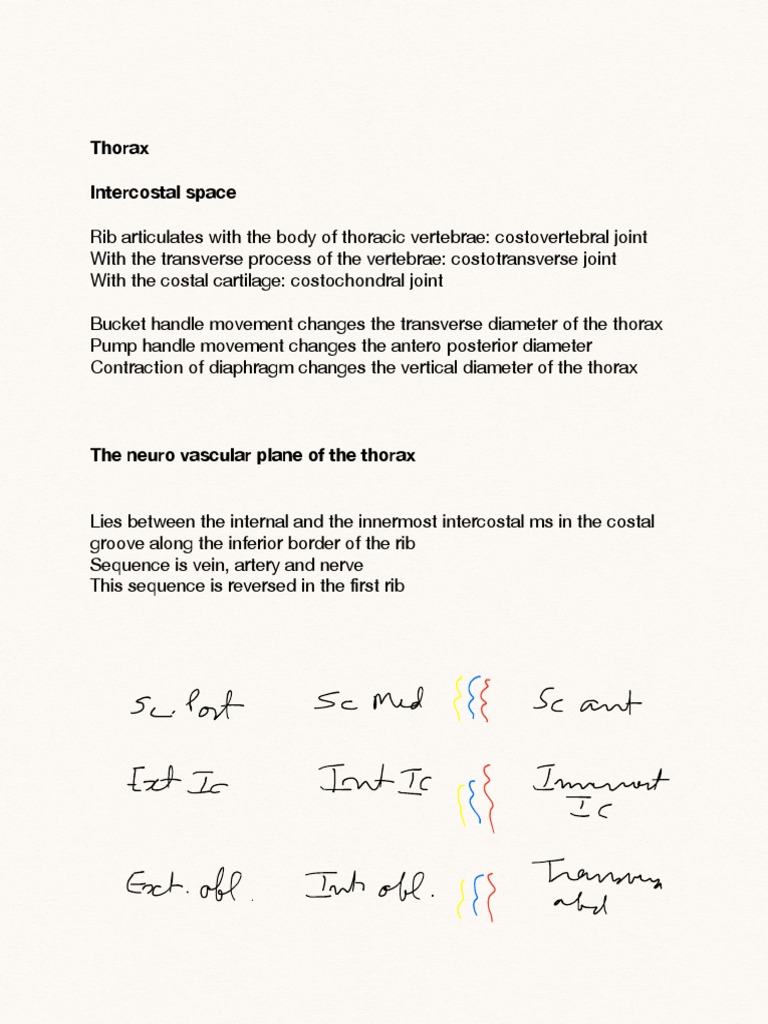 Thorax
Intercostal space
Rib articulates with the body of thoracic vertebrae: costovertebral joint
With the transverse process of the vertebrae: costotransverse joint
With the costal cartilage: costochondral joint
Bucket handle movement changes the transverse diameter of the thorax
Pump handle movement changes the antero posterior diameter
Contraction of diaphragm changes the vertical diameter of the thorax
The neuro vascular plane of the thorax
Lies between the internal and the innermost intercostal ms in the costal
groove along the inferior border of the rib
Sequence is vein, artery and nerve
This sequence is reversed in the first rib
Sc. Post Sc Med Sc ant
Ext Ic Int Ic Innermost
Ic
Ext. obl. Int obl. Transvers
abd